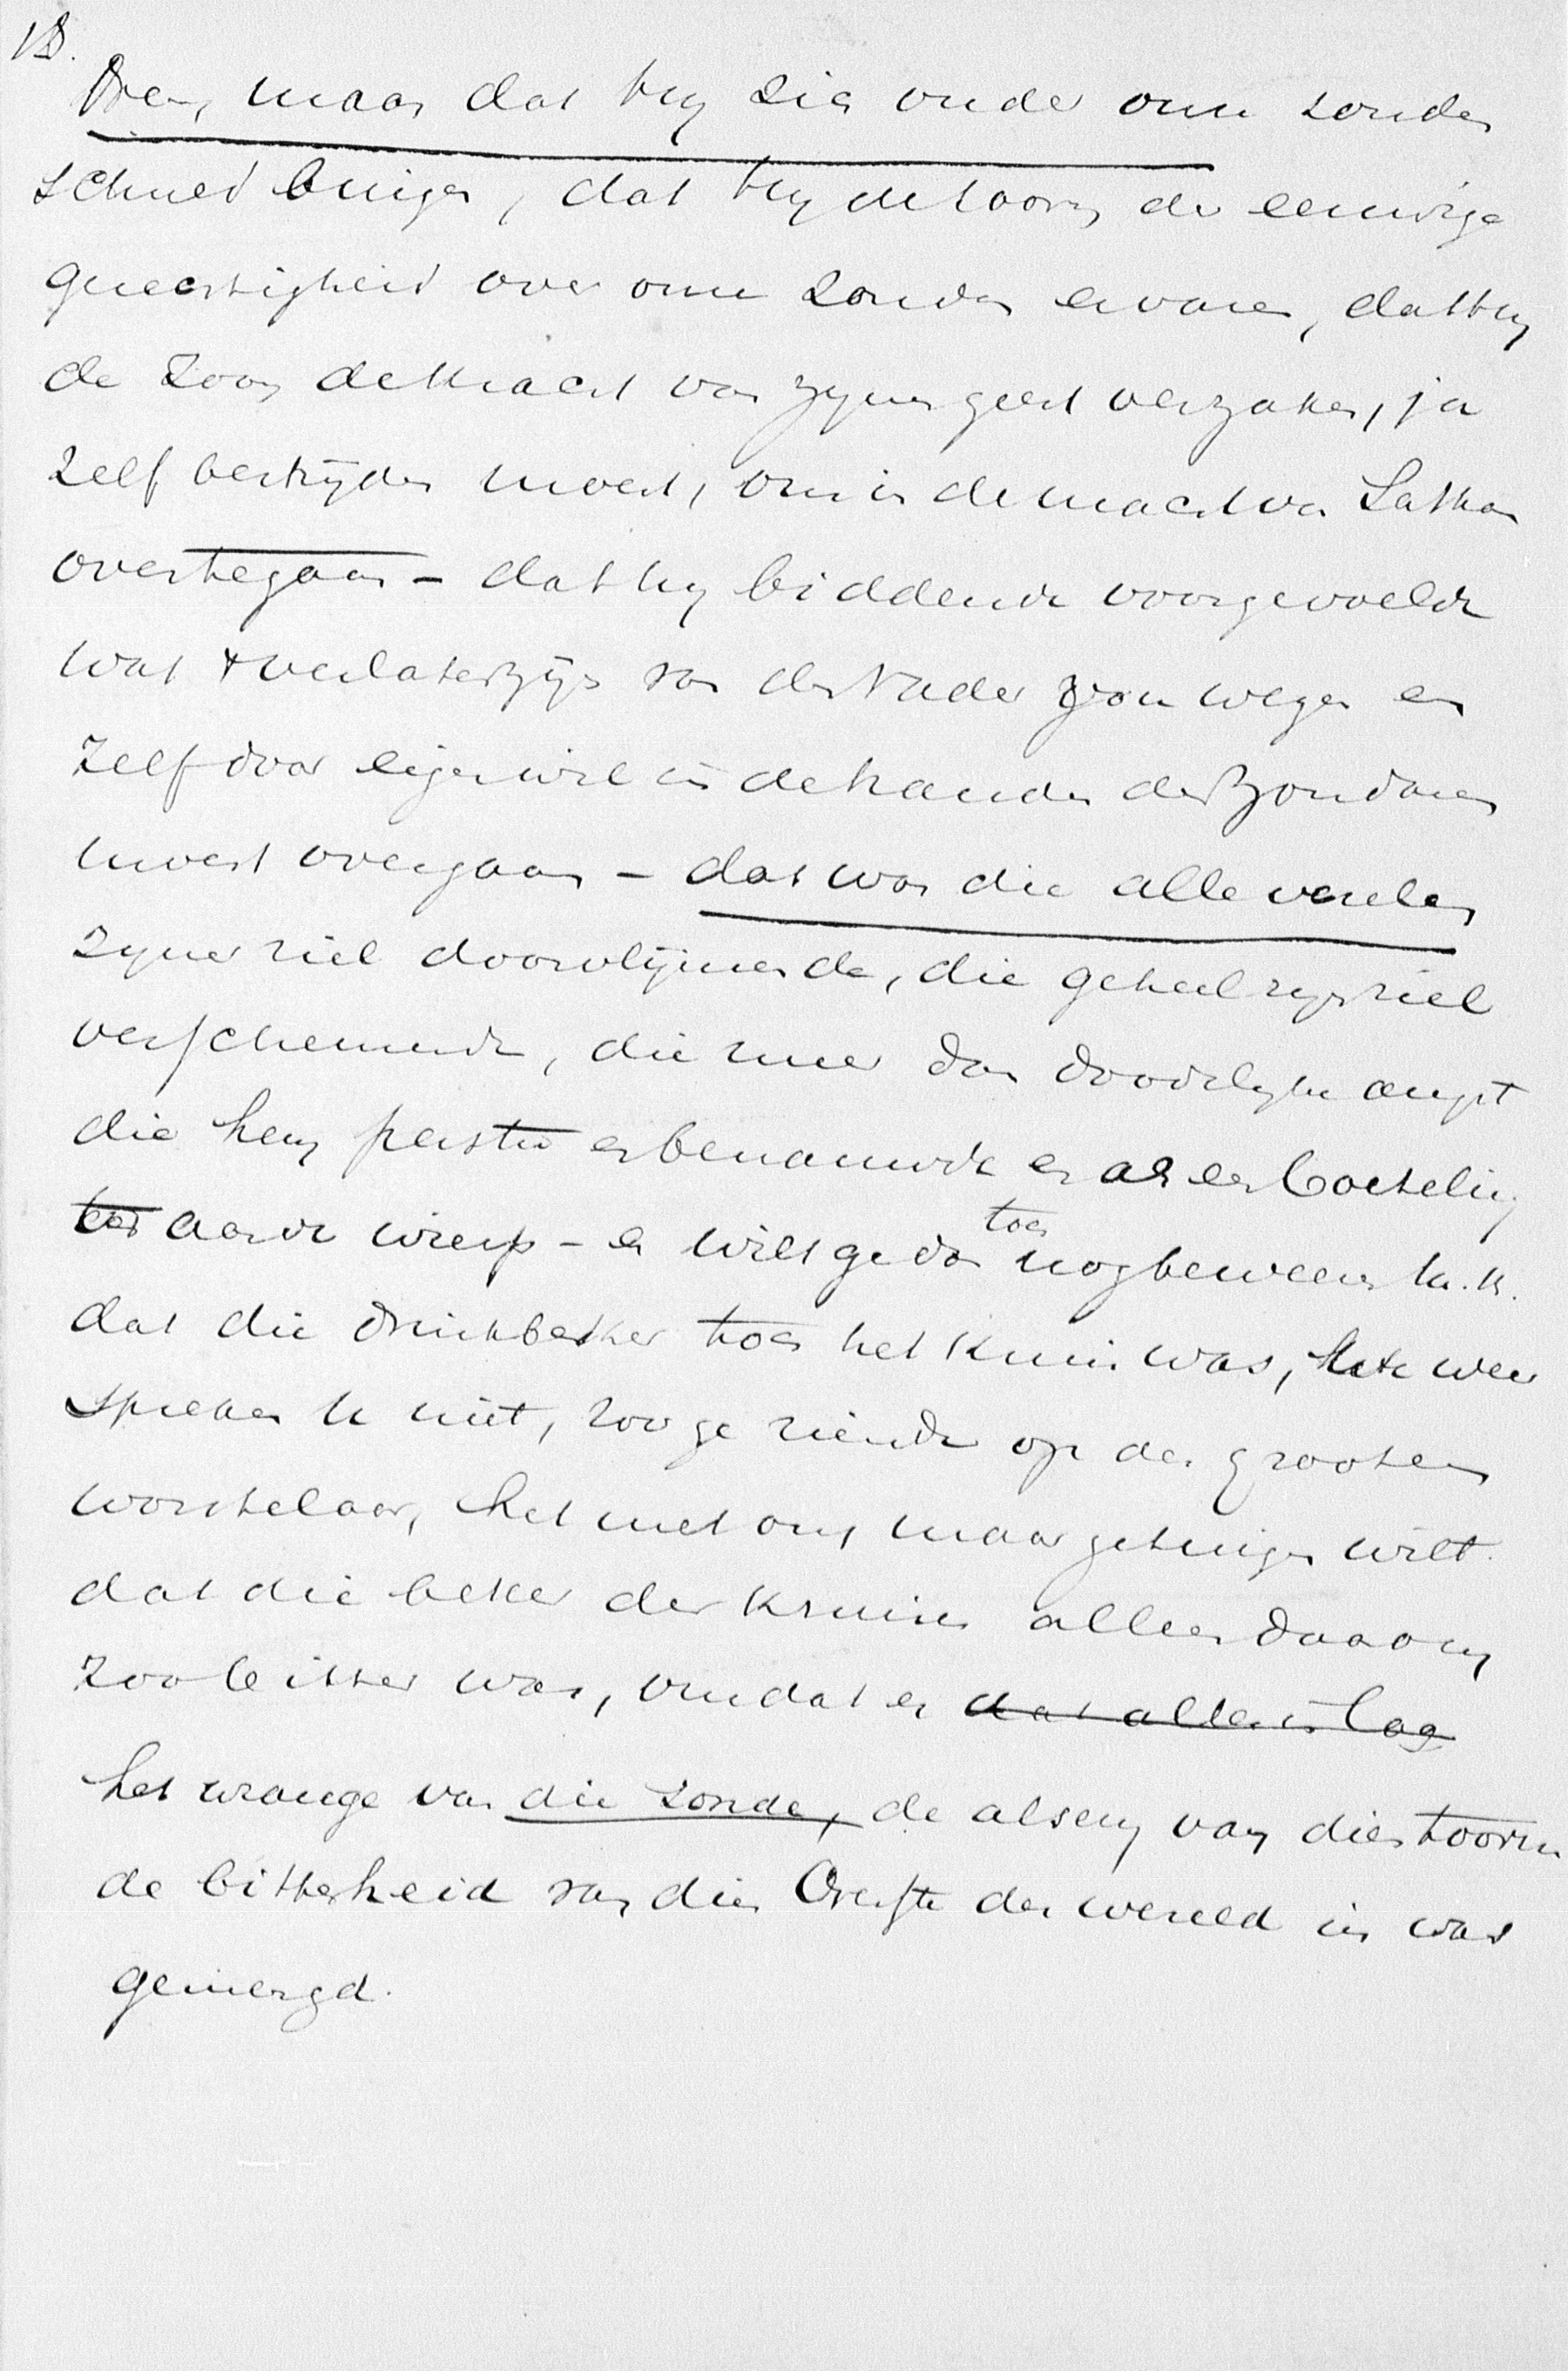 18.
Neen, maar dat hy zich onder onze zonden
schuld buigen, dat hy de toorn der eeuwige
gerechtigheid over onze zonden ervaren, dat hy
de Zoon de kracht van zynen geest verzaken, ja
zelf bestrijden moest, om in de macht van Sathan
overtegaan – dat hy biddende voorgevoelde
wat 't verlaten zijn van den Vader zou wezen en
zelf door eigen wil in de handen der zondaren
moest overgaan – dat was die alle
zyner ziel doorvlijmende, die geheel zyn ziel
verschemerde, die meer dan doodelyke angst
die hem perste en benauwde en als een
ter aarde wierp – en wilt ge dan toen nog beweren M.H.
dat die drinkbeker toen het Kruis was, weer
spreken U niet, zoo ge ziende op den grooten
worstelaar, het met ons maar getuigen wilt
dat die beker des Kruises alleen daarom
zoo bitter was, omdat er dat alles in lag
het wrange van die zonde, de alsem van dien toorn
de bitterheid van dien Overste der wereld in was
gemengd.